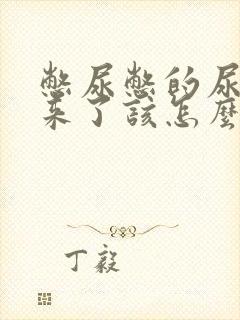 憋尿憋的尿
来了该怎麼
丁毅